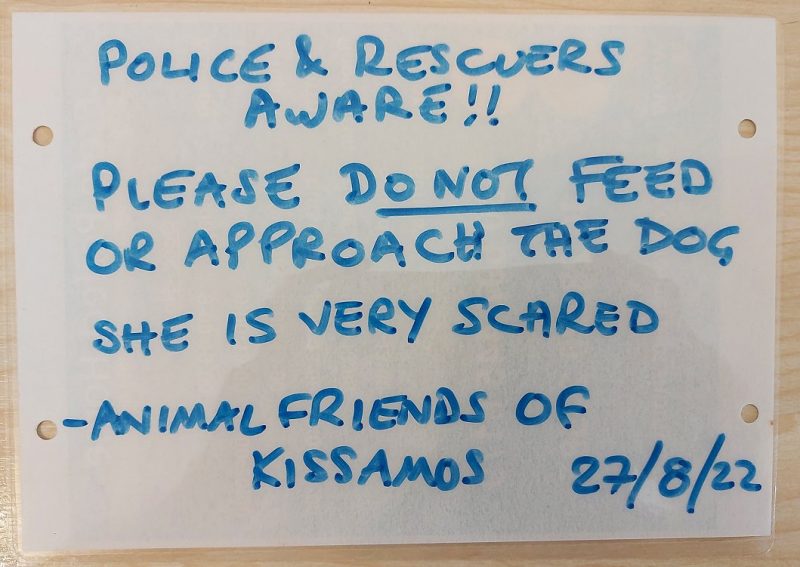 POLICE & RESCUERS
AWARE!!
PLEASE DO NOT FEED
OR APPROACH THE DOG
SHE IS VERY SCARED
-ANIMAL FRIENDS OF
KISSAMOS 27/8/22